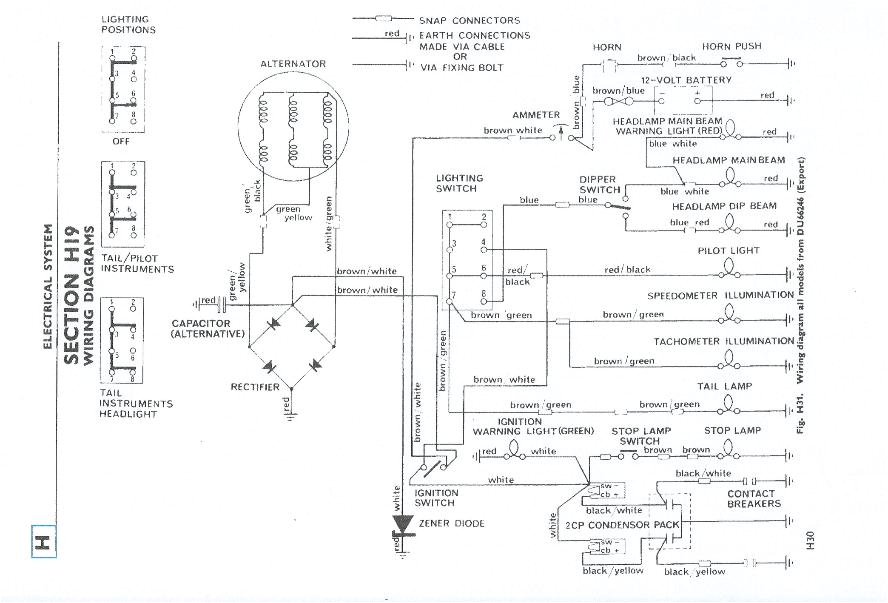 LIGHTING
POSITIONS
1 2
3 4
5 6
7 8
OFF
1 2
3 4
5 6
7 8
TAIL/PILOT
INSTRUMENTS
1 2
3 4
5 6
7 8
TAIL
INSTRUMENTS
HEADLIGHT
ELECTRICAL SYSTEM
SECTION H19
WIRING DIAGRAMS
H
SNAP CONNECTORS
red
EARTH CONNECTIONS
MADE VIA CABLE
OR
VIA FIXING BOLT
ALTERNATOR
green/
black
green
yellow
white/green
green/
yellow
red
CAPACITOR
(ALTERNATIVE)
brown/white
brown/white
RECTIFIER
red
HORN
brown/black
HORN PUSH
12-VOLT BATTERY
brown/blue
- +
red
brown blue
AMMETER
brown white
HEADLAMP MAIN BEAM
WARNING LIGHT (RED)
red
blue white
HEADLAMP MAIN BEAM
red
blue white
LIGHTING
SWITCH
1 2
3 4
5 6
7 8
DIPPER
SWITCH
blue
blue
HEADLAMP DIP BEAM
blue red
red
PILOT LIGHT
red/
black
red/black
SPEEDOMETER ILLUMINATION
brown green
brown/green
TACHOMETER ILLUMINATION
brown/green
brown/green
brown white
TAIL LAMP
brown/green
brown/green
brown/white
IGNITION
WARNING LIGHT(GREEN)
red
white
STOP LAMP
SWITCH
brown
brown
STOP LAMP
IGNITION
SWITCH
white
white
ZENER DIODE
red
white
sw -
cb +
black/white
black/white
CONTACT
BREAKERS
2CP CONDENSOR PACK
sw -
cb +
black/yellow
black/yellow
Fig. H31. Wiring diagram all models from DU66246 (Export)
H30